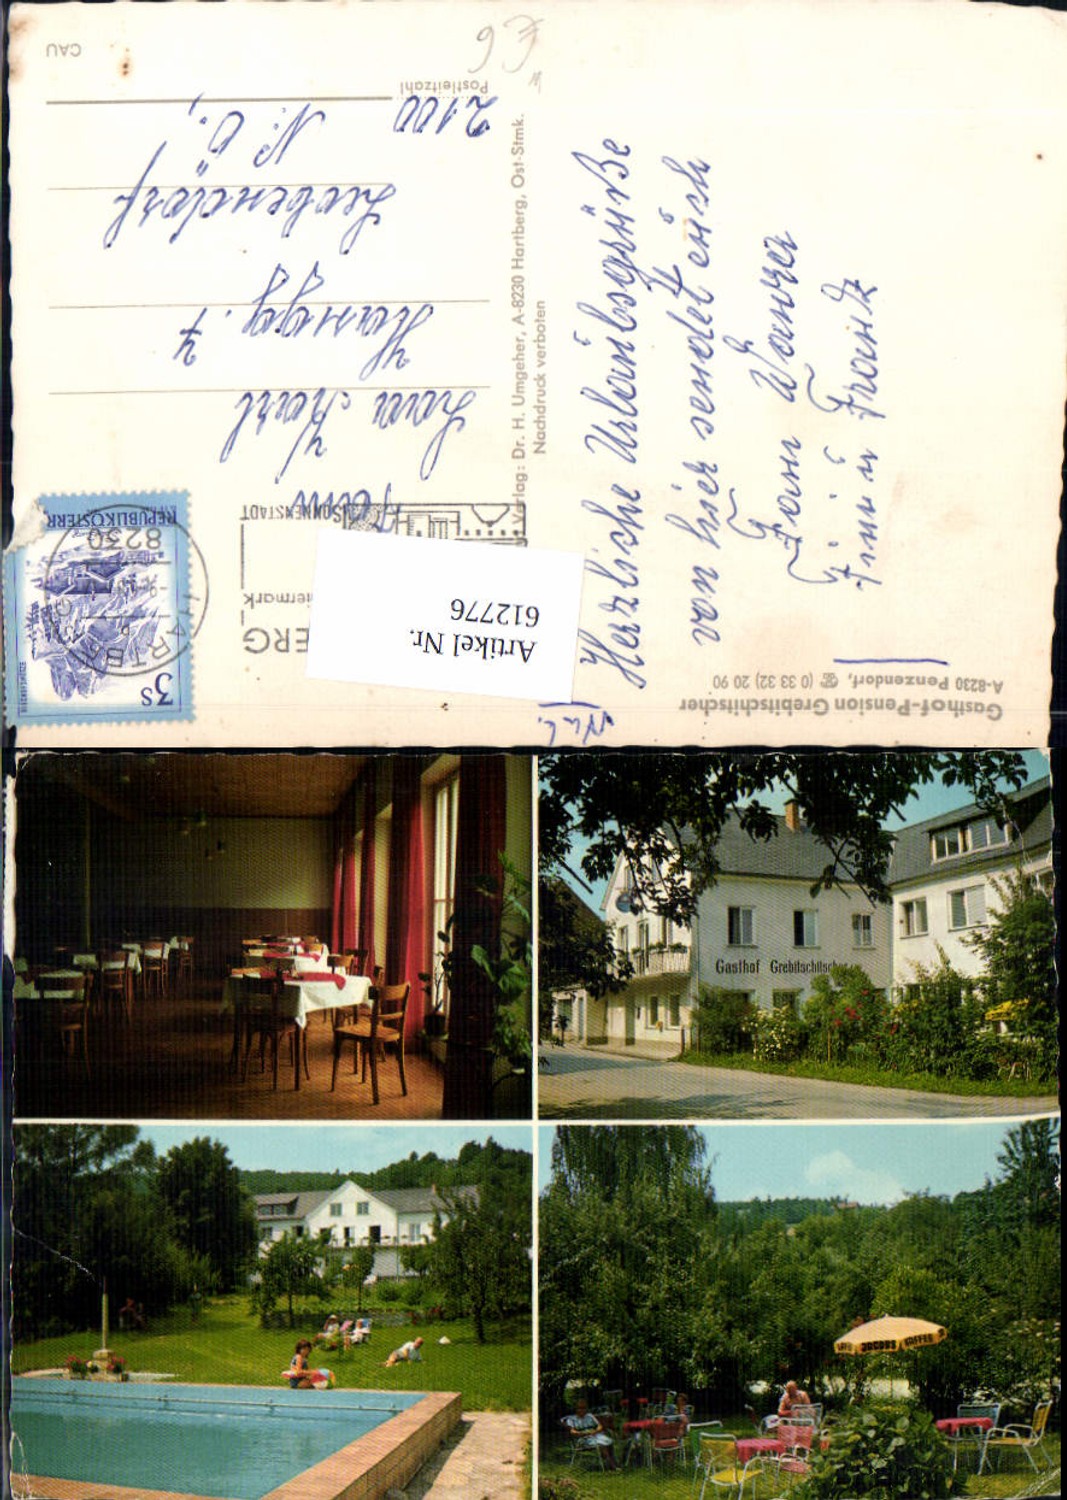 Gasthof-Pension Grebitschitscher
A-8230 Penzendorf, ☏ (0 33 32) 20 90
Herzliche Urlaubsgrüße
von hier sendet euch
Fam Wanzer
Fini u Frank
Verlag: Dr. H. Umgeher, A-8230 Hartberg, Ost-Stmk.
Nachdruck verboten
Artikel Nr.
612776
3 S
REPUBLIK ÖSTERR
8230
HARTBERG
ERG
iermark
SONNENSTADT
Fam
Karl
Leobendorf
N. Ö.,
2100
Postleitzahl
CAU
Gasthof Grebitschitscher
JACOBS KAFFEE